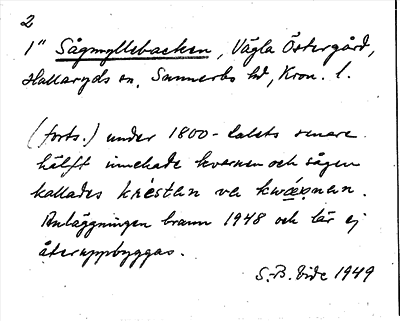 2
1" Sågmyllebacken, Vägla Östergård,
Hallaryds sn, Sunnerbo hd, Kron. l.
(forts.) under 1800-talets senare
hälft innehade kvarnen och sågen
kallades kréstan va kwæ̱ṇan.
Anläggningen brann 1948 och lär ej
återuppbyggas.
S. B. Vide 1949